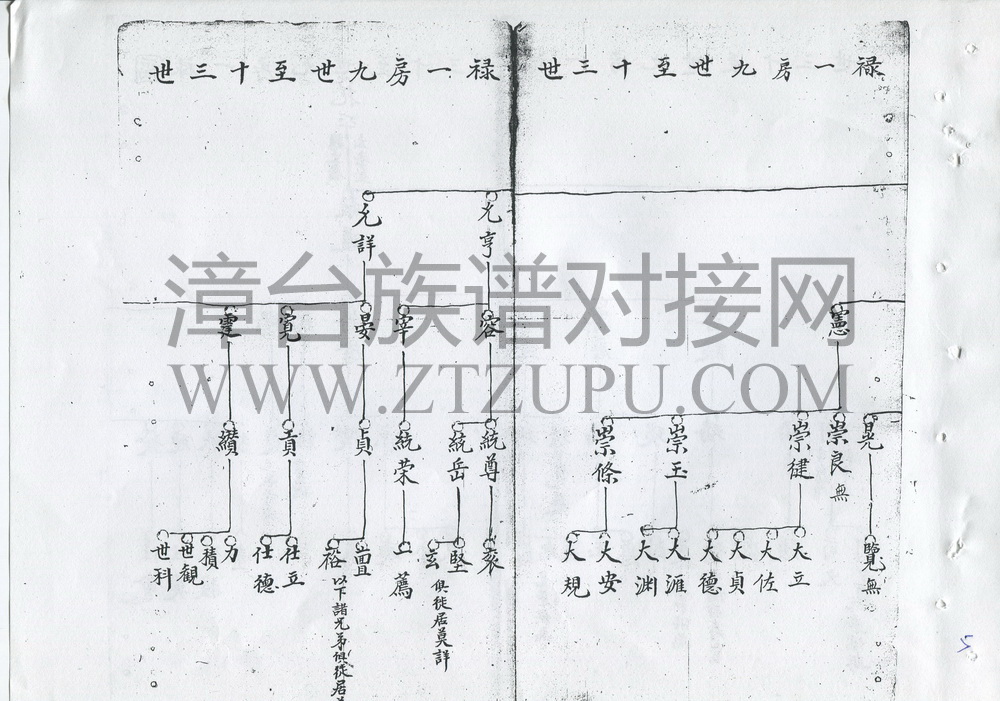 禄一房九世至十三世
憲
晃
崇良 無
崇徤
崇玉
崇條
覽 無
大立
大佐
大貞
大德
大涯
大渊
大安
大規
禄一房九世至十三世
允亨
允詳
容
宰
晏
寛
霆
統尊
統岳
統荣
貞
貢
纉
衮
堅
玄
俱徙居莫詳
薦
裕
以下諸兄弟俱徙居
仕立
仕德
力
積
世観
世科
漳台族谱对接网
WWW.ZTZUPU.COM
5